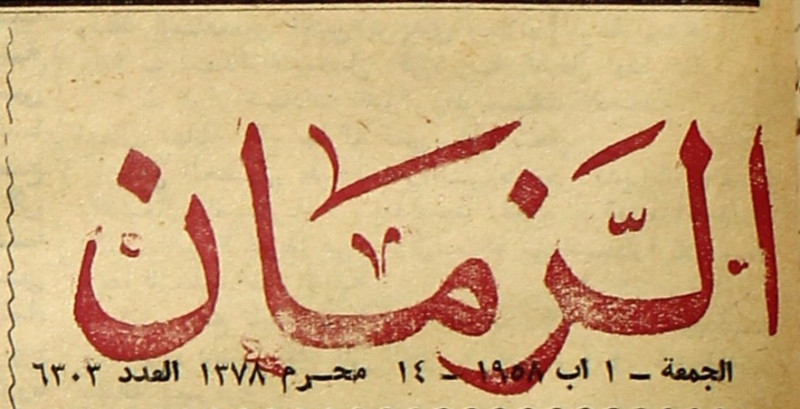 الزمان
الجمعة – ١ اب ١٩٥٨ – ١٤ محرم ١٣٧٨ العدد ٦٣٠٣